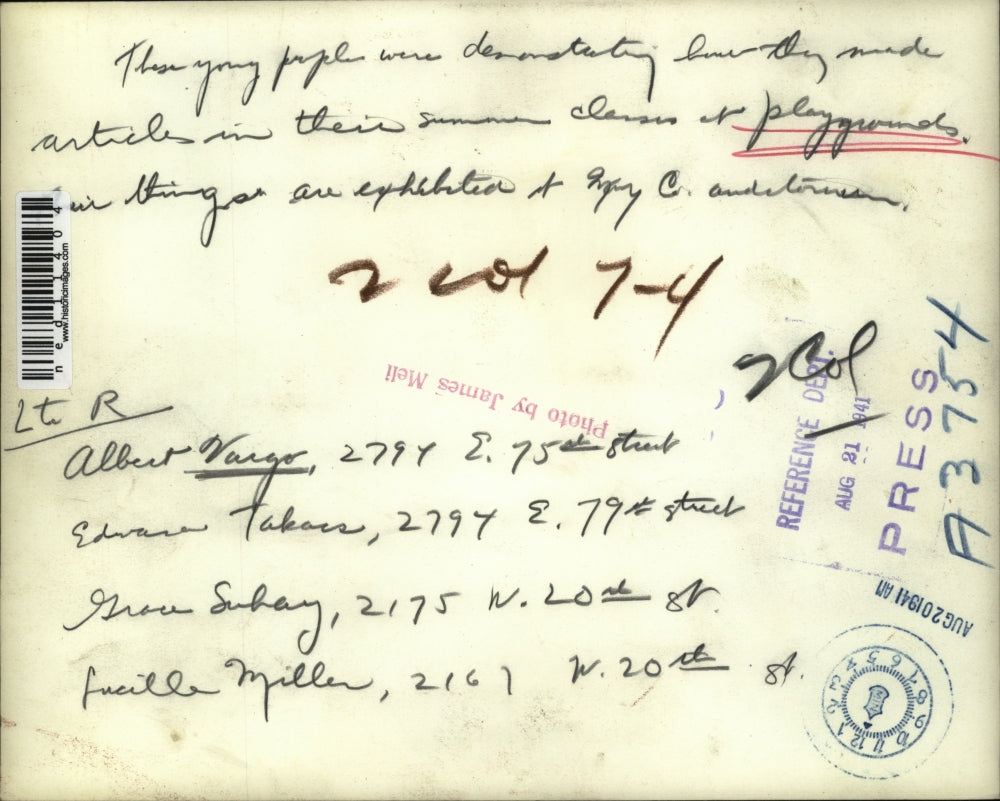 These young people were demonstrating how they made
articles in their summer classes at playgrounds.
things are exhibited at Co. auditorium.
2 col 7-4
2 Col
Photo by James Meli
REFERENCE DEPT.
AUG 21 1941
PRESS
A 3754
AUG 20 1941 AM
1 2 3 4 5 6 7 8 9 10 11 12
ned114044
www.historicimages.com
L to R
Albert Vargo, 2794 E. 75th street
Edward Takacs, 2794 E. 79th street
Grace Suhay, 2175 W. 20th St.
Lucille Miller, 2167 W. 20th St.